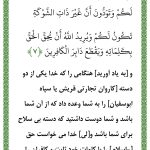 لَكُمْ وَتَوَدُّونَ أَنَّ غَيْرَ ذَاتِ الشَّوْكَةِ
تَكُونُ لَكُمْ وَيُرِيدُ اللَّهُ أَنْ يُحِقَّ الْحَقَّ
بِكَلِمَاتِهِ وَيَقْطَعَ دَابِرَ الْكَافِرِينَ ﴿۷﴾
و [به یاد آورید] هنگامی را که خدا یکی از دو
دسته [کاروان تجارتی قریش یا سپاه
ابوسفیان] را به شما وعده داد که از آن شما
باشد و شما دوست داشتید که دسته بی سلاح
برای شما باشد و[لی] خدا می خواست حق